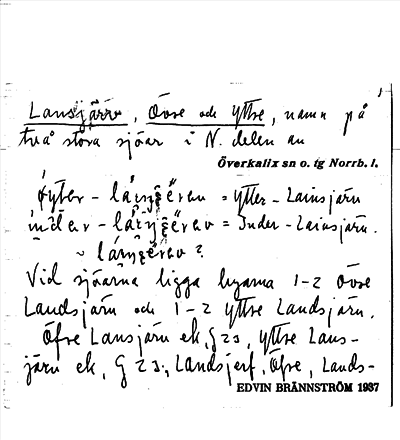 1
Lansjärv, Övre och Yttre, namn på
två stora sjöar i N. delen av
Överkalix sn o. tg Norrb. l.
= Ytter-Lainsjärv
= Inder-Lainsjärv.
Vid sjöarna ligga byarna 1-2 Övre
Landsjärv och 1-2 Yttre Landsjärv.
Öfre Lansjärv ek, G 23, Yttre Lans-
järv ek, G 23., Landsjerf, Öfre, Lands-
EDVIN BRÄNNSTRÖM 1937